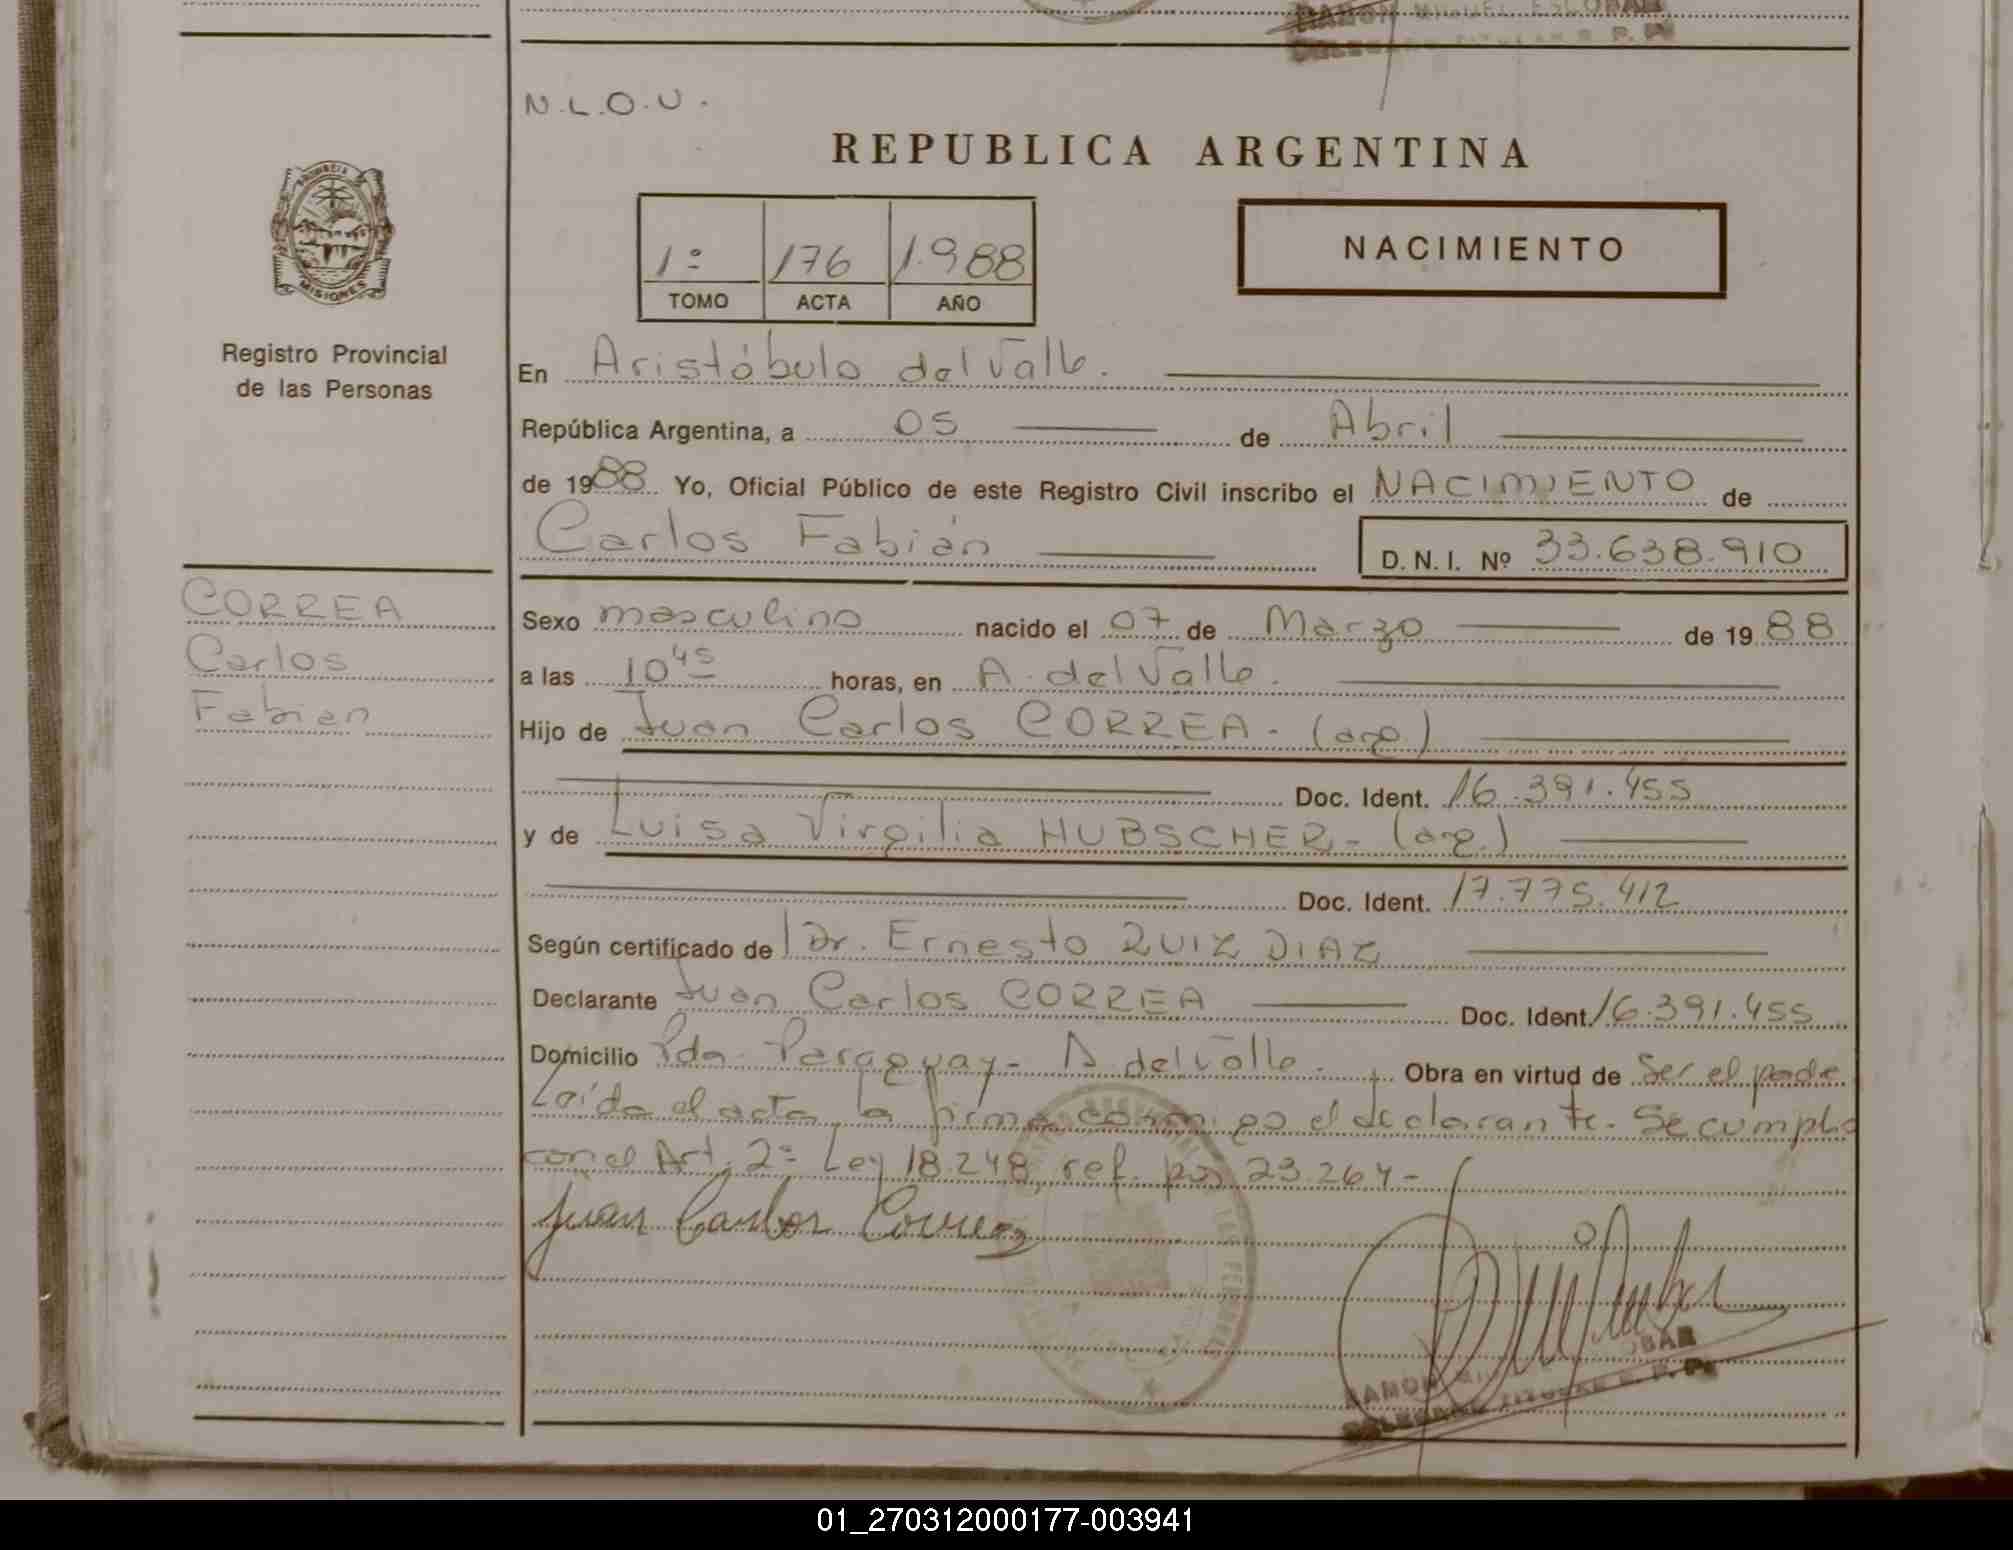 RAMON MIGUEL ESCOBAR
DELEGADO TITULAR R. P. P.
N.L.O.U.
REPUBLICA ARGENTINA
PROVINCIA
MISIONES
1º 176 1.988
TOMO ACTA AÑO
NACIMIENTO
Registro Provincial
de las Personas
En Aristóbulo del Valle.
República Argentina, a 05 de Abril
de 1988 Yo, Oficial Público de este Registro Civil inscribo el NACIMIENTO de
Carlos Fabián D.N.I. Nº 33.638.910
CORREA
Carlos
Fabian
Sexo masculino nacido el 07 de Marzo de 1988
a las 10 45 horas, en A. del Valle.
Hijo de Juan Carlos CORREA - (arg.)
Doc. Ident. 16.391.455
y de Luisa Virgilia HUBSCHER - (arg.)
Doc. Ident. 17.775.412
Según certificado de Dr. Ernesto RUIZ DIAZ
Declarante Juan Carlos CORREA Doc. Ident. 16.391.455
Domicilio Pda. Paraguay - A. del Valle. Obra en virtud de Ser el padre
Leída el acta, la firma conmigo el declarante. Se cumplio
con el Art. 2º Ley 18.248, ref. por 23.264 -
Juan Carlos Correa
RAMON MI OBAR
DELEGADO TITULAR R. P. P.
01_270312000177-003941